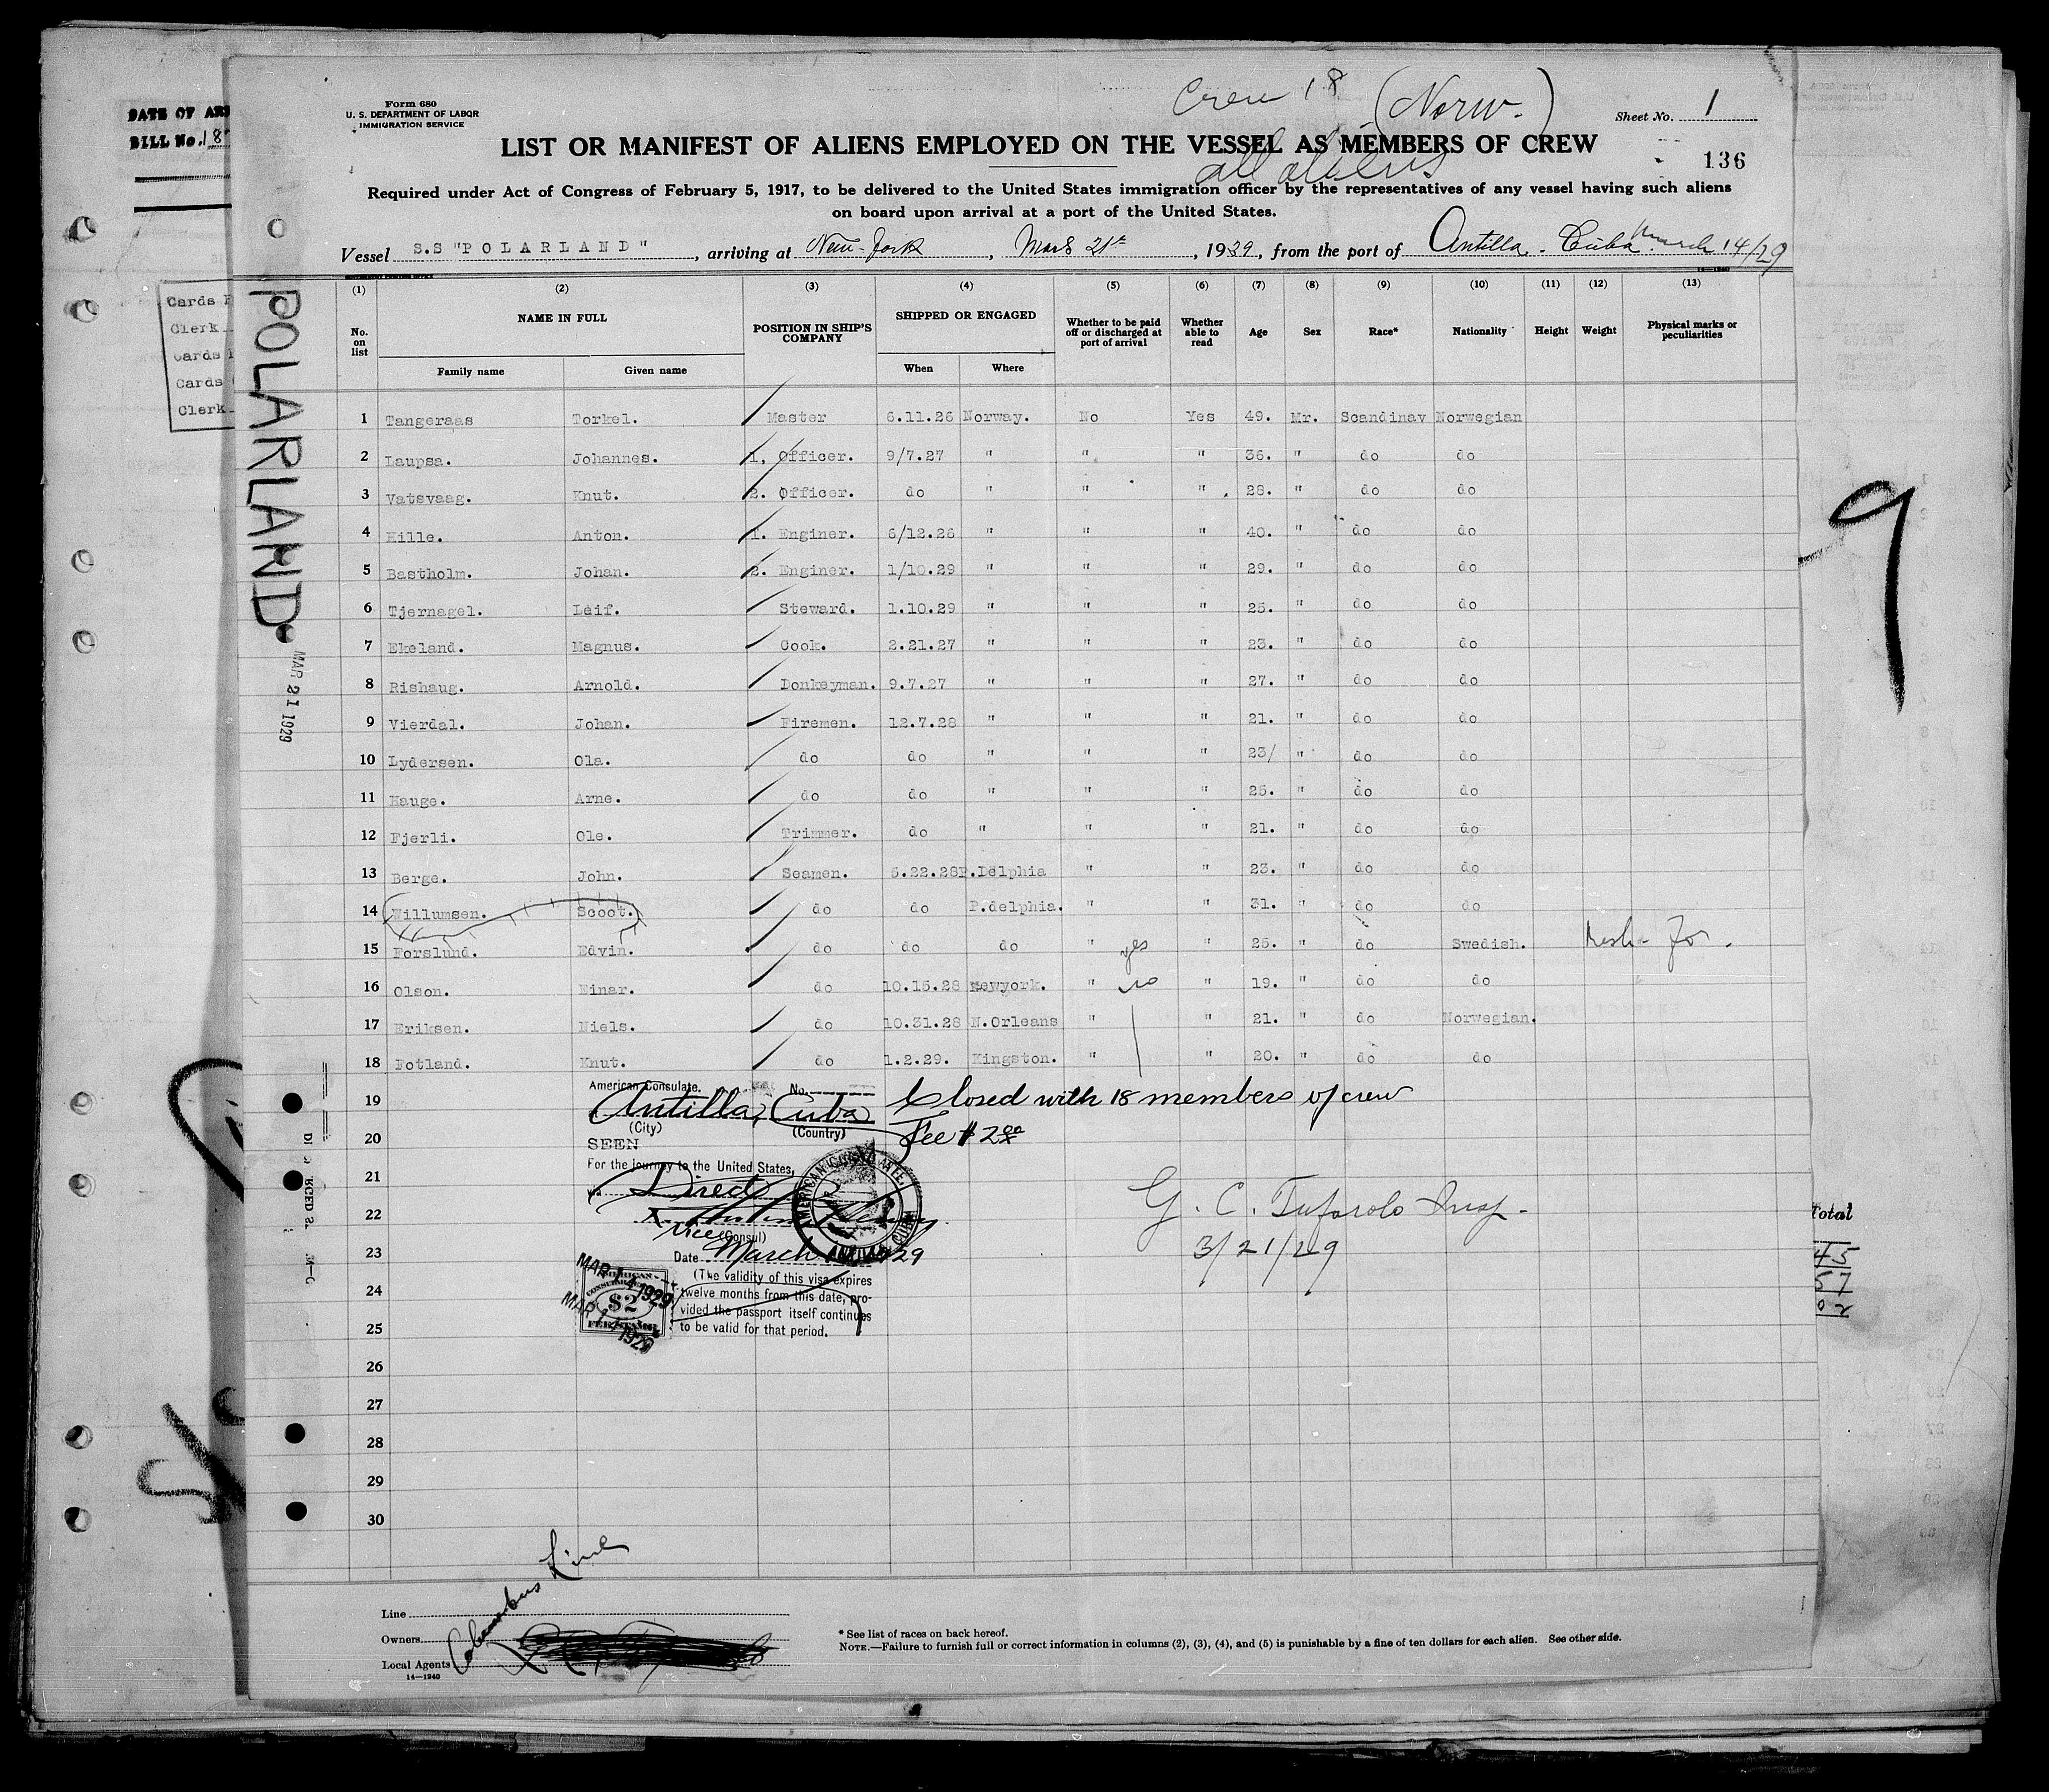 Crew 18 (Norw.)
Form 680
U. S. DEPARTMENT OF LABOR
IMMIGRATION SERVICE
Sheet No. 1
LIST OR MANIFEST OF ALIENS EMPLOYED ON THE VESSEL AS MEMBERS OF CREW
all aliens
136
Required under Act of Congress of February 5, 1917, to be delivered to the United States immigration officer by the representatives of any vessel having such aliens
on board upon arrival at a port of the United States.
Vessel S.S "POLARLAND", arriving at New-York, March 21st, 1929, from the port of Antilla - Cuba March 14/29
DATE OF AR
BILL No. 18
Cards
Clerk
Cards
Cards
Clerk
POLARLAND
MAR 21 1929
9
(1) (2) (3) (4) (5) (6) (7) (8) (9) (10) (11) (12) (13)
No. on list NAME IN FULL POSITION IN SHIP'S COMPANY SHIPPED OR ENGAGED Whether to be paid off or discharged at port of arrival Whether able to read Age Sex Race* Nationality Height Weight Physical marks or peculiarities
Family name Given name When Where
1 Tangeraas Torkel. Master 6.11.26 Norway. No Yes 49. Mr. Scandinav Norwegian
2 Laupsa. Johannes. 1. Officer. 9/7.27 " " " 36. " do do
3 Vatsvaag. Knut. 2. Officer. do " " " 28. " do do
4 Hille. Anton. 1. Enginer. 6/12.26 " " " 40. " do do
5 Bastholm. Johan. 2. Enginer. 1/10.29 " " " 29. " do do
6 Tjernagel. Leif. Steward. 1.10.29 " " " 25. " do do
7 Ekeland. Magnus. Cook. 2.21.27 " " " 23. " do do
8 Rishaug. Arnold. Donkeyman. 9.7.27 " " " 27. " do do
9 Vierdal. Johan. Firemen. 12.7.28 " " " 21. " do do
10 Lydersen. Ola. do do " " " 23/ " do do
11 Hauge. Arne. do do " " " 25. " do do
12 Fjerli. Ole. Trimmer. do " " " 21. " do do
13 Berge. John. Seamen. 5.22.28 P.Delphia " " 23. " do do
14 Willumsen. Scoot. do do P.delphia. " " 31. " do do
15 Forslund. Edvin. do do do " yes " 25. " do Swedish.
16 Olson. Einar. do 10.15.28 Newyork. " no " 19. " do do
17 Eriksen. Niels. do 10.31.28 N.Orleans " " 21. " do Norwegian.
18 Fotland. Knut. do 1.2.29. Kingston. " " 20. " do do
19
20
21
22
23
24
25
26
27
28
29
30
American Consulate. No.
Antilla, Cuba
(City) (Country)
Closed with 18 members of crew
Fee $2.00
SEEN
For the journey to the United States,
via Direct
Vice (Consul)
Date March 1929
(The validity of this visa expires
twelve months from this date, pro-
vided the passport itself continues
to be valid for that period.
AMERICAN
$2
FEE STAMP
MAR 14 1929
MAR 14 1929
G. C. Tufarolo Insp.
3/21/29
Total
45
57
02
Columbus Line
Line
Owners
Local Agents
14—1240
* See list of races on back hereof.
NOTE.—Failure to furnish full or correct information in columns (2), (3), (4), and (5) is punishable by a fine of ten dollars for each alien. See other side.